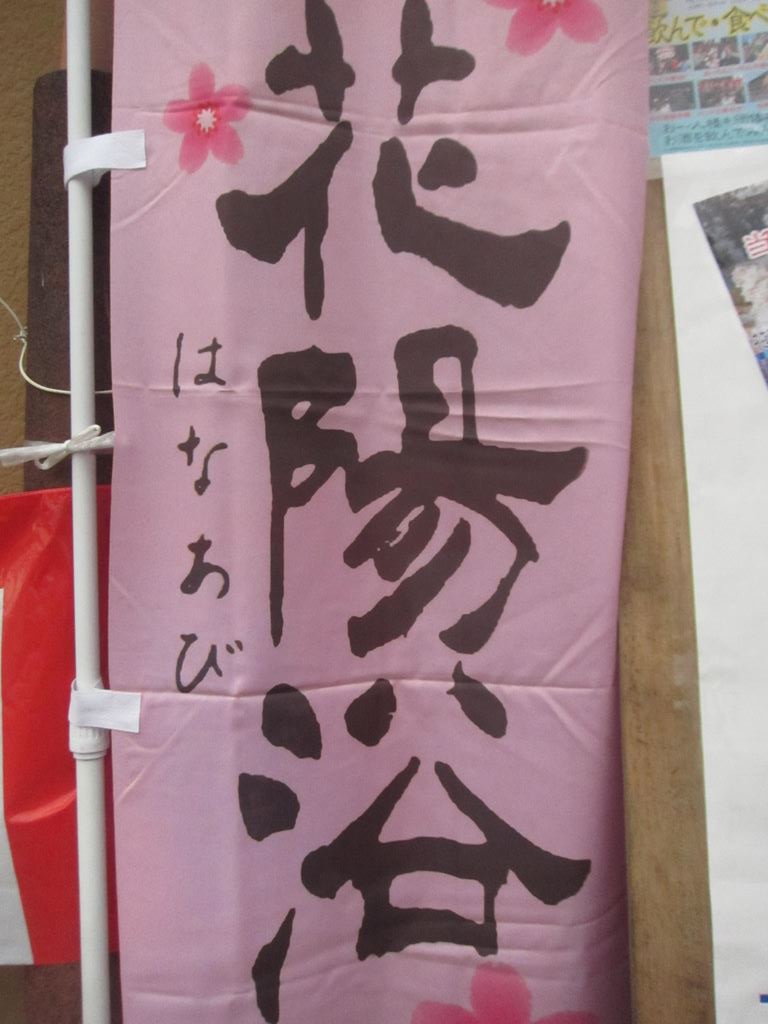 花陽浴
はなあび
飲んで・食べ